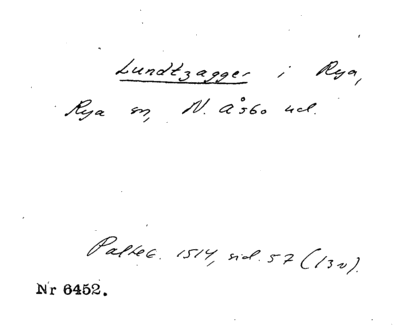 Lundtzagger i Rya,
Rya sn, N. Åsbo hd.
Palteb. 1514, sid. 57 (13v).
Nr 6452.